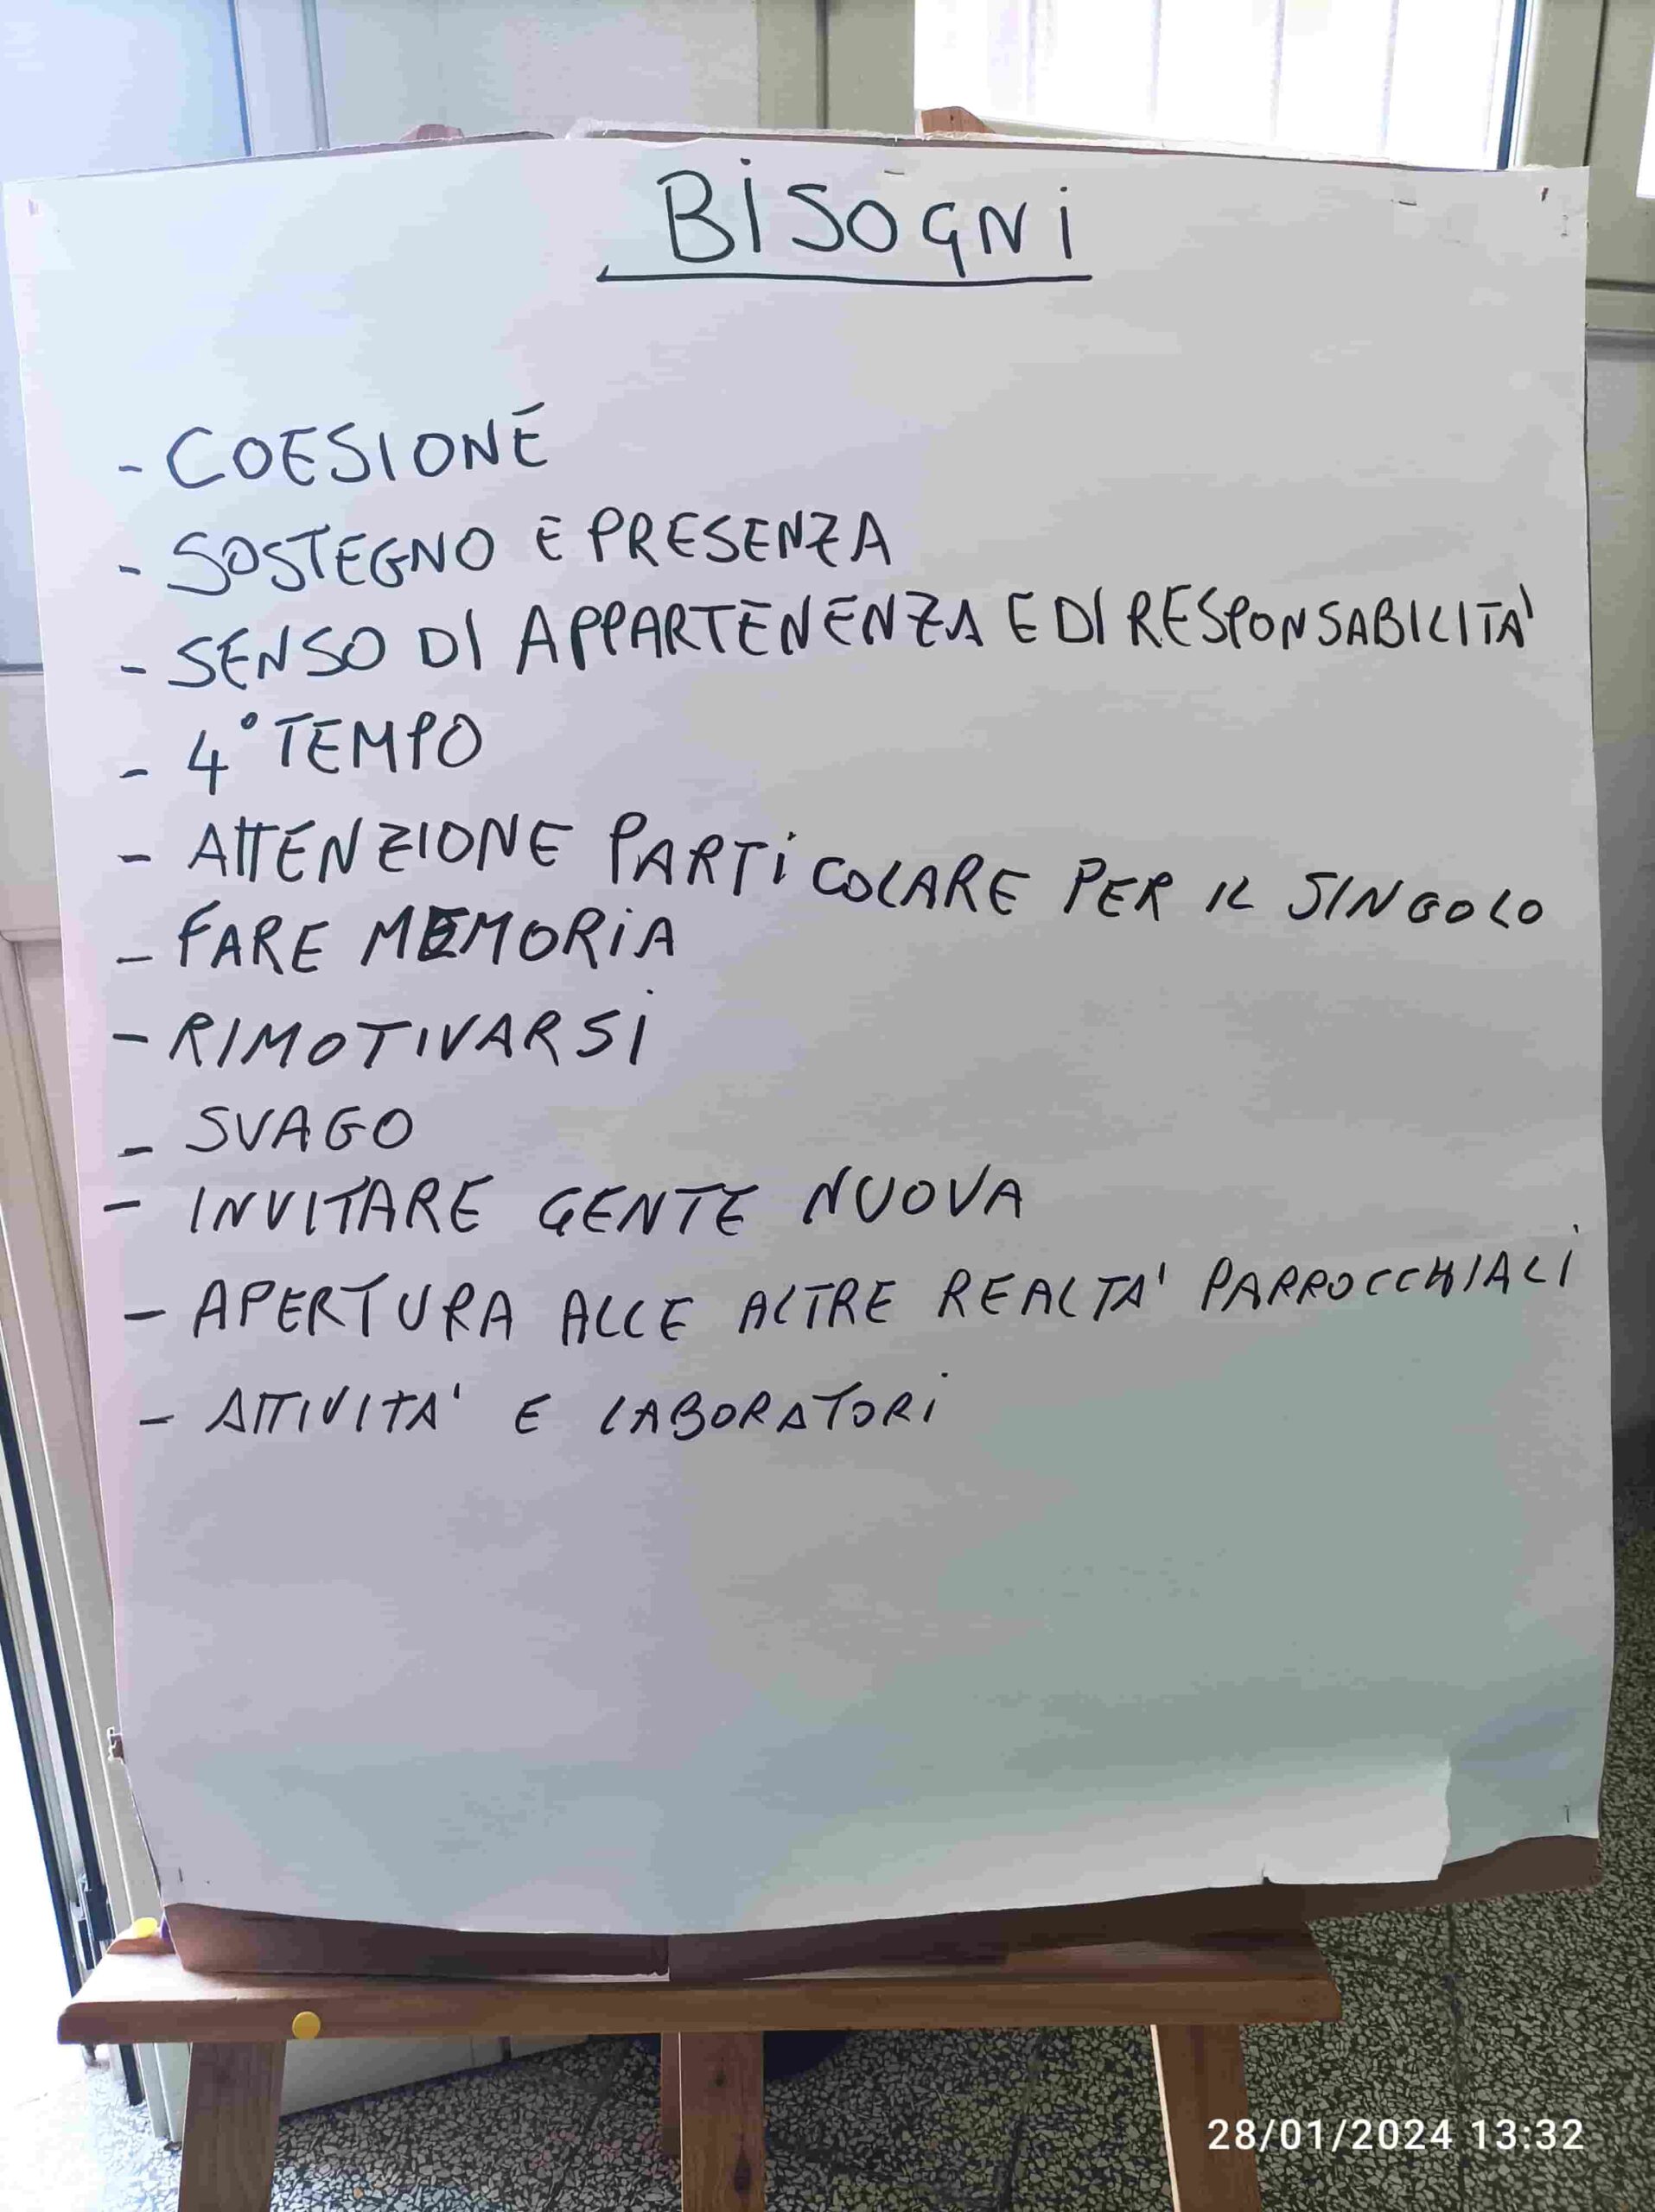 BISOGNI
- COESIONE
- SOSTEGNO E PRESENZA
- SENSO DI APPARTENENZA E DI RESPONSABILITA'
- 4° TEMPO
- ATTENZIONE PARTICOLARE PER IL SINGOLO
- FARE MEMORIA
- RIMOTIVARSI
- SVAGO
- INVITARE GENTE NUOVA
- APERTURA ALLE ALTRE REALTA' PARROCCHIALI
- ATTIVITA' E LABORATORI
28/01/2024 13:32